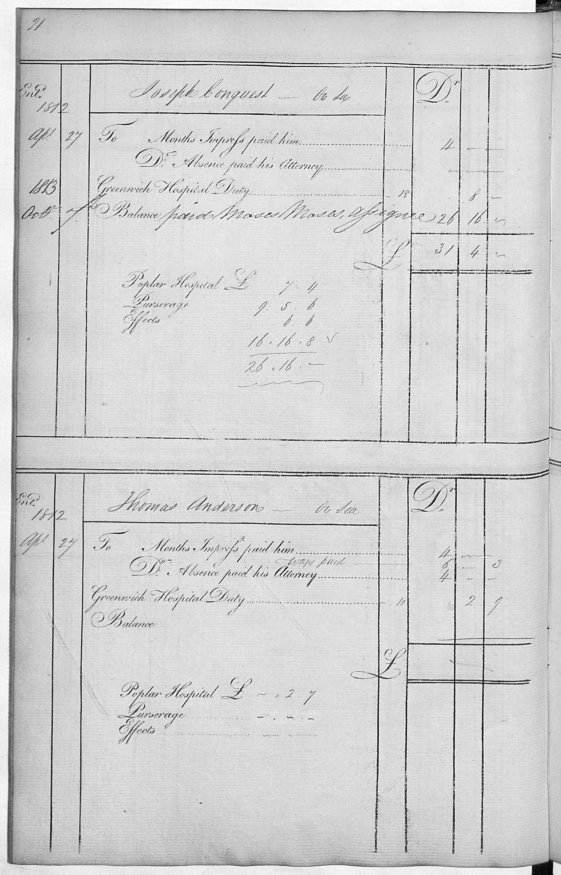 21
Ent.d 1812 Joseph Conquest — Or Sea D.r
Apl 27 To Months Impress paid him 4 – –
D.o Absence paid his Attorney – – –
1813 Greenwich Hospital Duty 18 8 –
Oct.r Balance paid Moses Moses, assignee 26 16 –
£ 31 4 –
Poplar Hospital £ 7 . 4
Purserage 9 . 5 . 6
Effects 6 . 6
16 . 16 . 8
26 . 16 . –
Ent.d 1812 Thomas Anderson — Or Sea D.r
Apl 27 To Months Impress paid him 4 – –
wages paid 6 – 3
D.o Absence paid his Attorney 4 – –
Greenwich Hospital Duty 10 2 9
Balance
£
Poplar Hospital £ – . 2 7
Purserage – . – . –
Effects – –